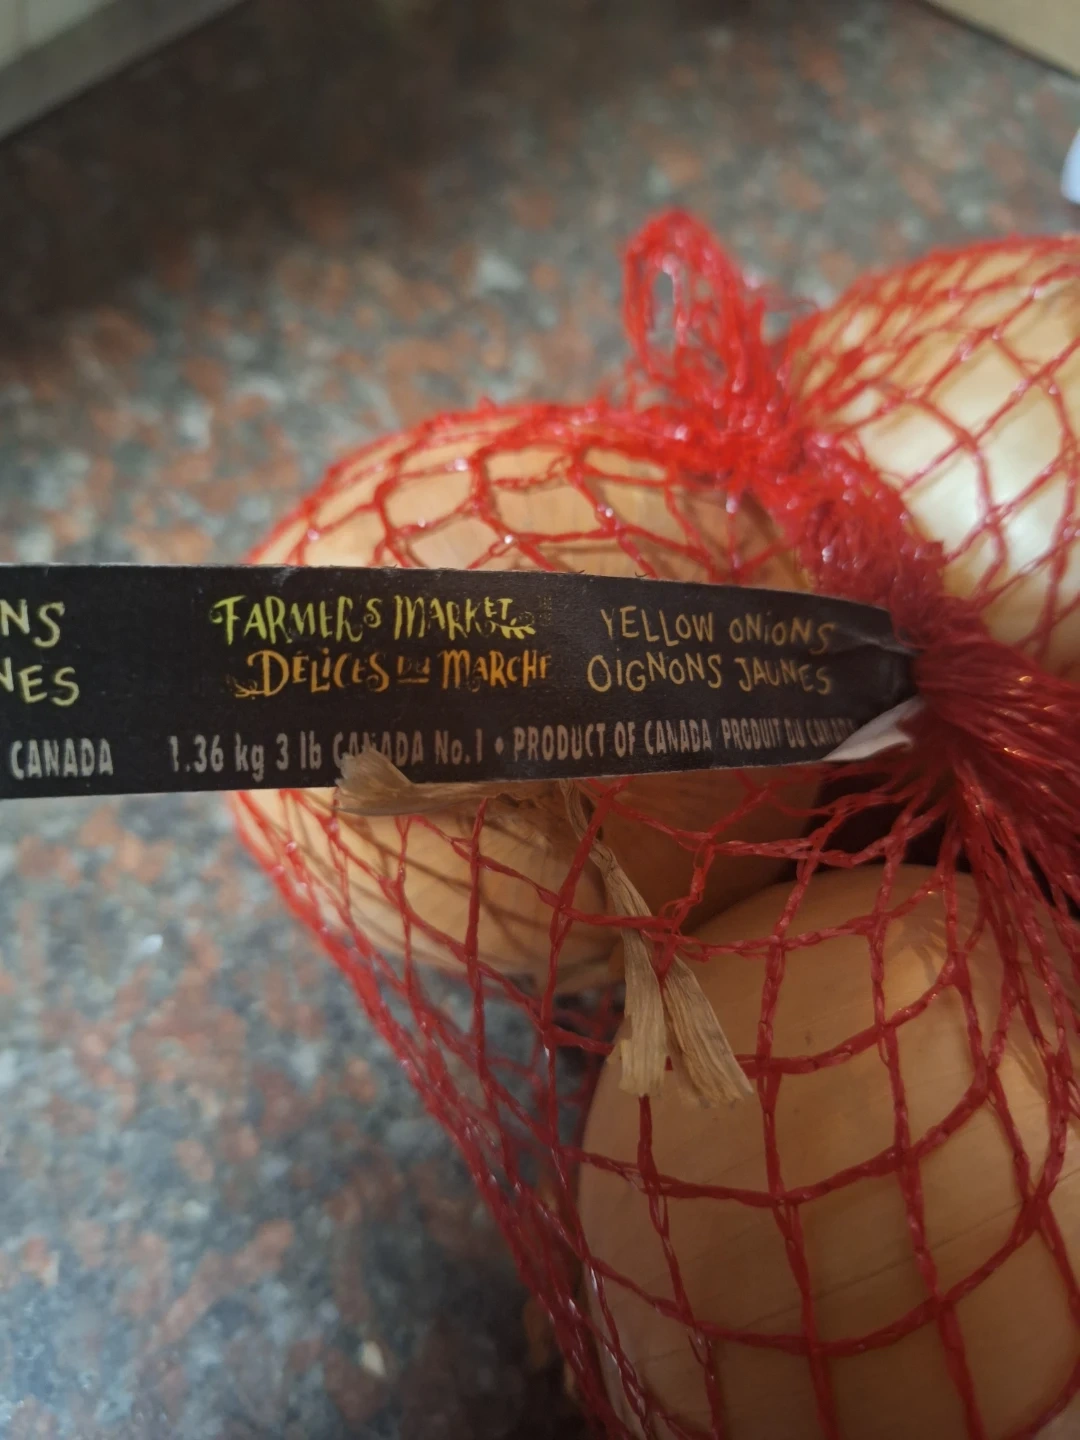 NS
NES
CANADA
FARMER'S MARKET
DÉLICES DU MARCHÉ
YELLOW ONIONS
OIGNONS JAUNES
1.36 kg 3 lb CANADA No.1 • PRODUCT OF CANADA/PRODUIT DU CANADA